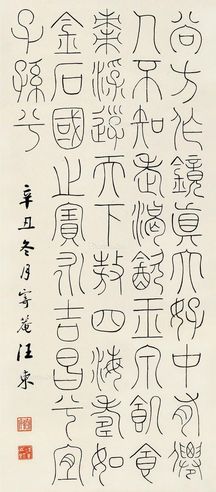 尚方作鏡真大好中有僊
人不知老渴飲玉泉飢食
棗浮游天下敖四海壽如
金石國之寶永吉昌兮宜
子孫兮
辛丑冬月寄菴汪東